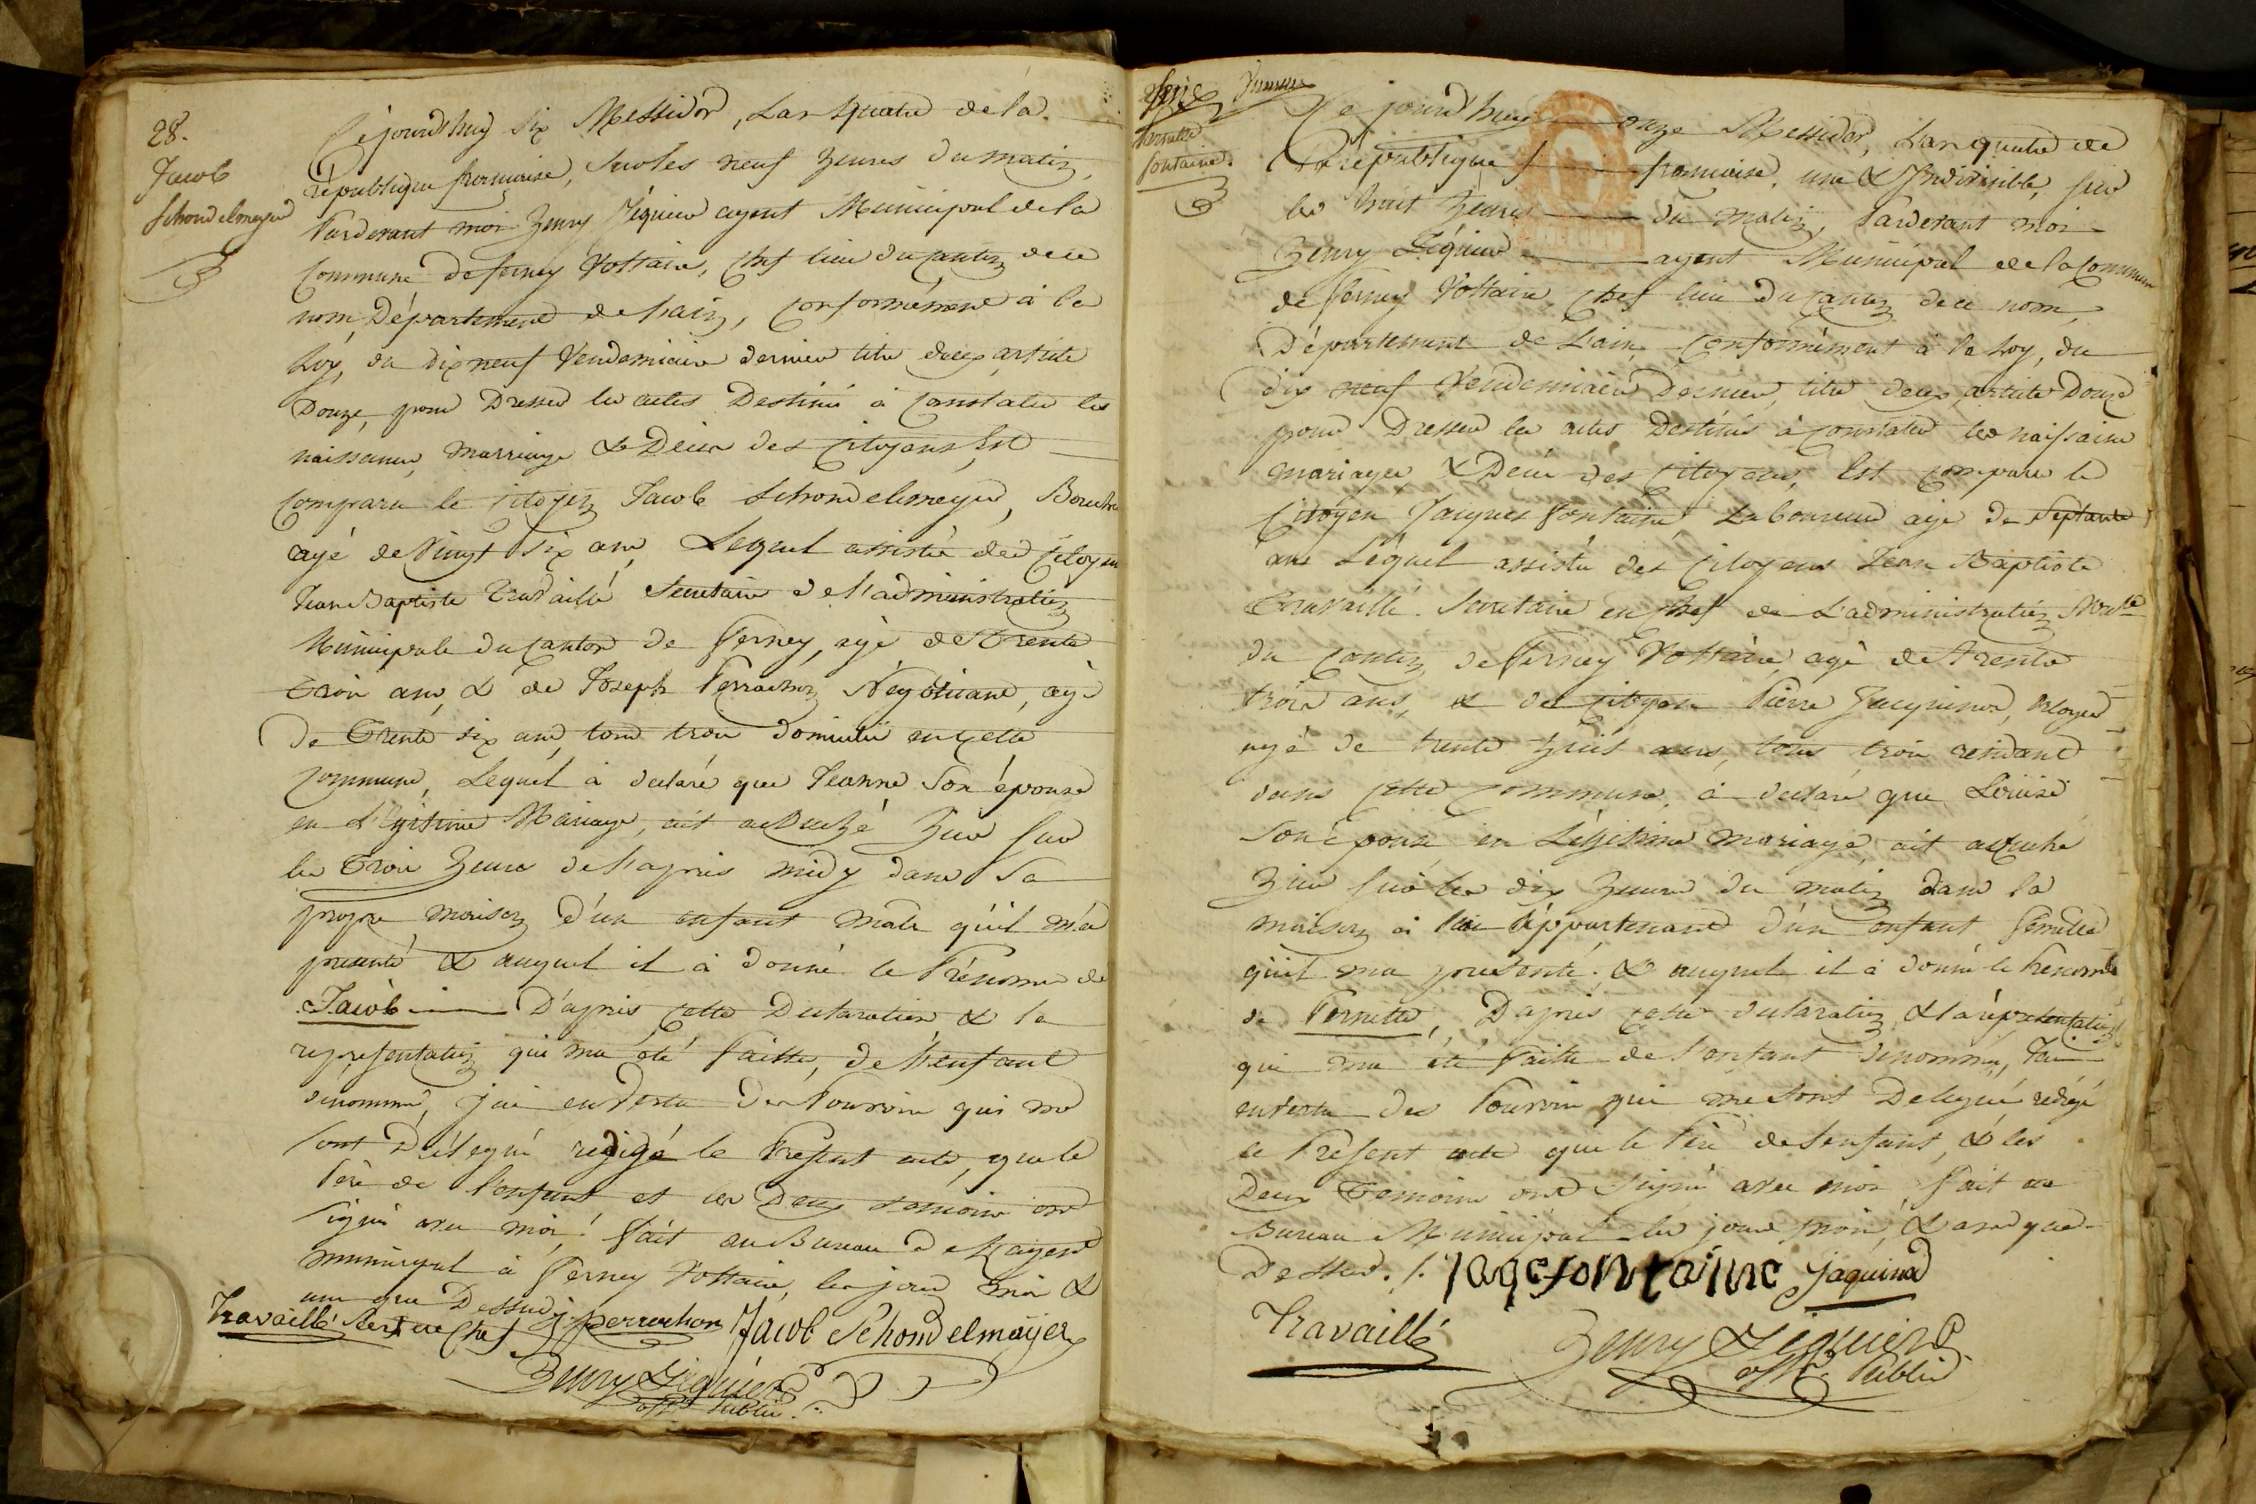 28.
Jacob
Schondelmeyer
Cejourdhuy six Messidor, Lan quatre de la
république francaise, sur les neuf heures du matin,
Pardevant moi henry Léguier agent Municipal de la
Commune de ferney Voltaire, chef lieu du canton de ce
nom, Département de Lain, conformément à la
Loy, du dix neuf Vendemiaire dernier titre deux, article
Douze, pour Dresser les actes Destiné à constater les
naissance, marriage & Deces des citoyens, Est
comparu le citoyen Jacob Schondelmeyer,
agé de Vingt six ans, Lequel assisté des Citoyen
Jean Baptiste Travaillé Secretaire de l'administration
Municipale du Canton de Ferney, agé de Trente
Trois ans, & de Joseph Perrachon Négotiant, agé
De Trente six ans, tous trois domicilié en cette
commune, Lequel à declaré que Jeanne Son épouse
en Légitime Mariage, ait accouché hier sur
les Trois heures de l'aprés midy dans Sa
propre maison d'un enfant mâle qu'il m'a
presenté & auquel il à donné le Prénom de
Jacob D'aprés cette Declaration & la
representation qui ma été faitte, de l'enfant
dénommé, j'ai en Vertu Des Pouvoirs qui me
sont Délégué redigé le Présent acte, que le
Père de l'enfant et les Deux temoins ont
signé avec moi. fait au Bureau de L'agent
municipal à Ferney Voltaire, les jour mois &
an que Dessus
Travaillé Secre en Chef J perrachon Jacob Schondelmeyer
henry Léguier
offr Public
Pernette
fontaine.
Ce jourdhuy onze Messidor, Lan quatre de
La république francaise, une & Indivisible, sur
les huit heures du matin, Pardevant moi
henry Léguier agent Municipal de la Commune
de ferney Voltaire chef lieu du Canton de ce nom,
Département de L'ain, conformément à la Loy, du
dix neuf Vendemiaire Dernier, titre deux, article Douze
pour Dresser les actes Destinés à constater les naissance
mariages, & Deces des citoyens, Est comparu le
Citoyen Jacques fontaine, Laboureur agé de Septante
ans Lequel assisté des Citoyens Jean Baptiste
Travaillé. Secretaire en chef de L'administration
du Canton de Ferney Voltaire agé de Trente
trois ans, & de citoyen Pierre Jacquinod,
agé de trente huit ans, tous trois
dans cette commune, à declaré que Louise
Son épouse en Légitime mariage, ait accouché
hier sur les dix heures du matin dans la
maison à lui appartenant d'un enfant femelle
qu'il ma presenté. & auquel il à donné le Prénom
de Pernette, D'aprés cette declaration & la représentation
qui ma été faitte de l'enfant dénommée, J'ai
en Vertu des Pouvoirs qui me sont Delegué redigé
le Présent acte que le Père de l'enfant, & les
Deux Temoins ont Signé avec moi, fait au
Bureau Municipal les jour mois, & an que
Dessus. /. jaqe fontainne Jaquinod
Travaillé
henry Léguier
offr. Public